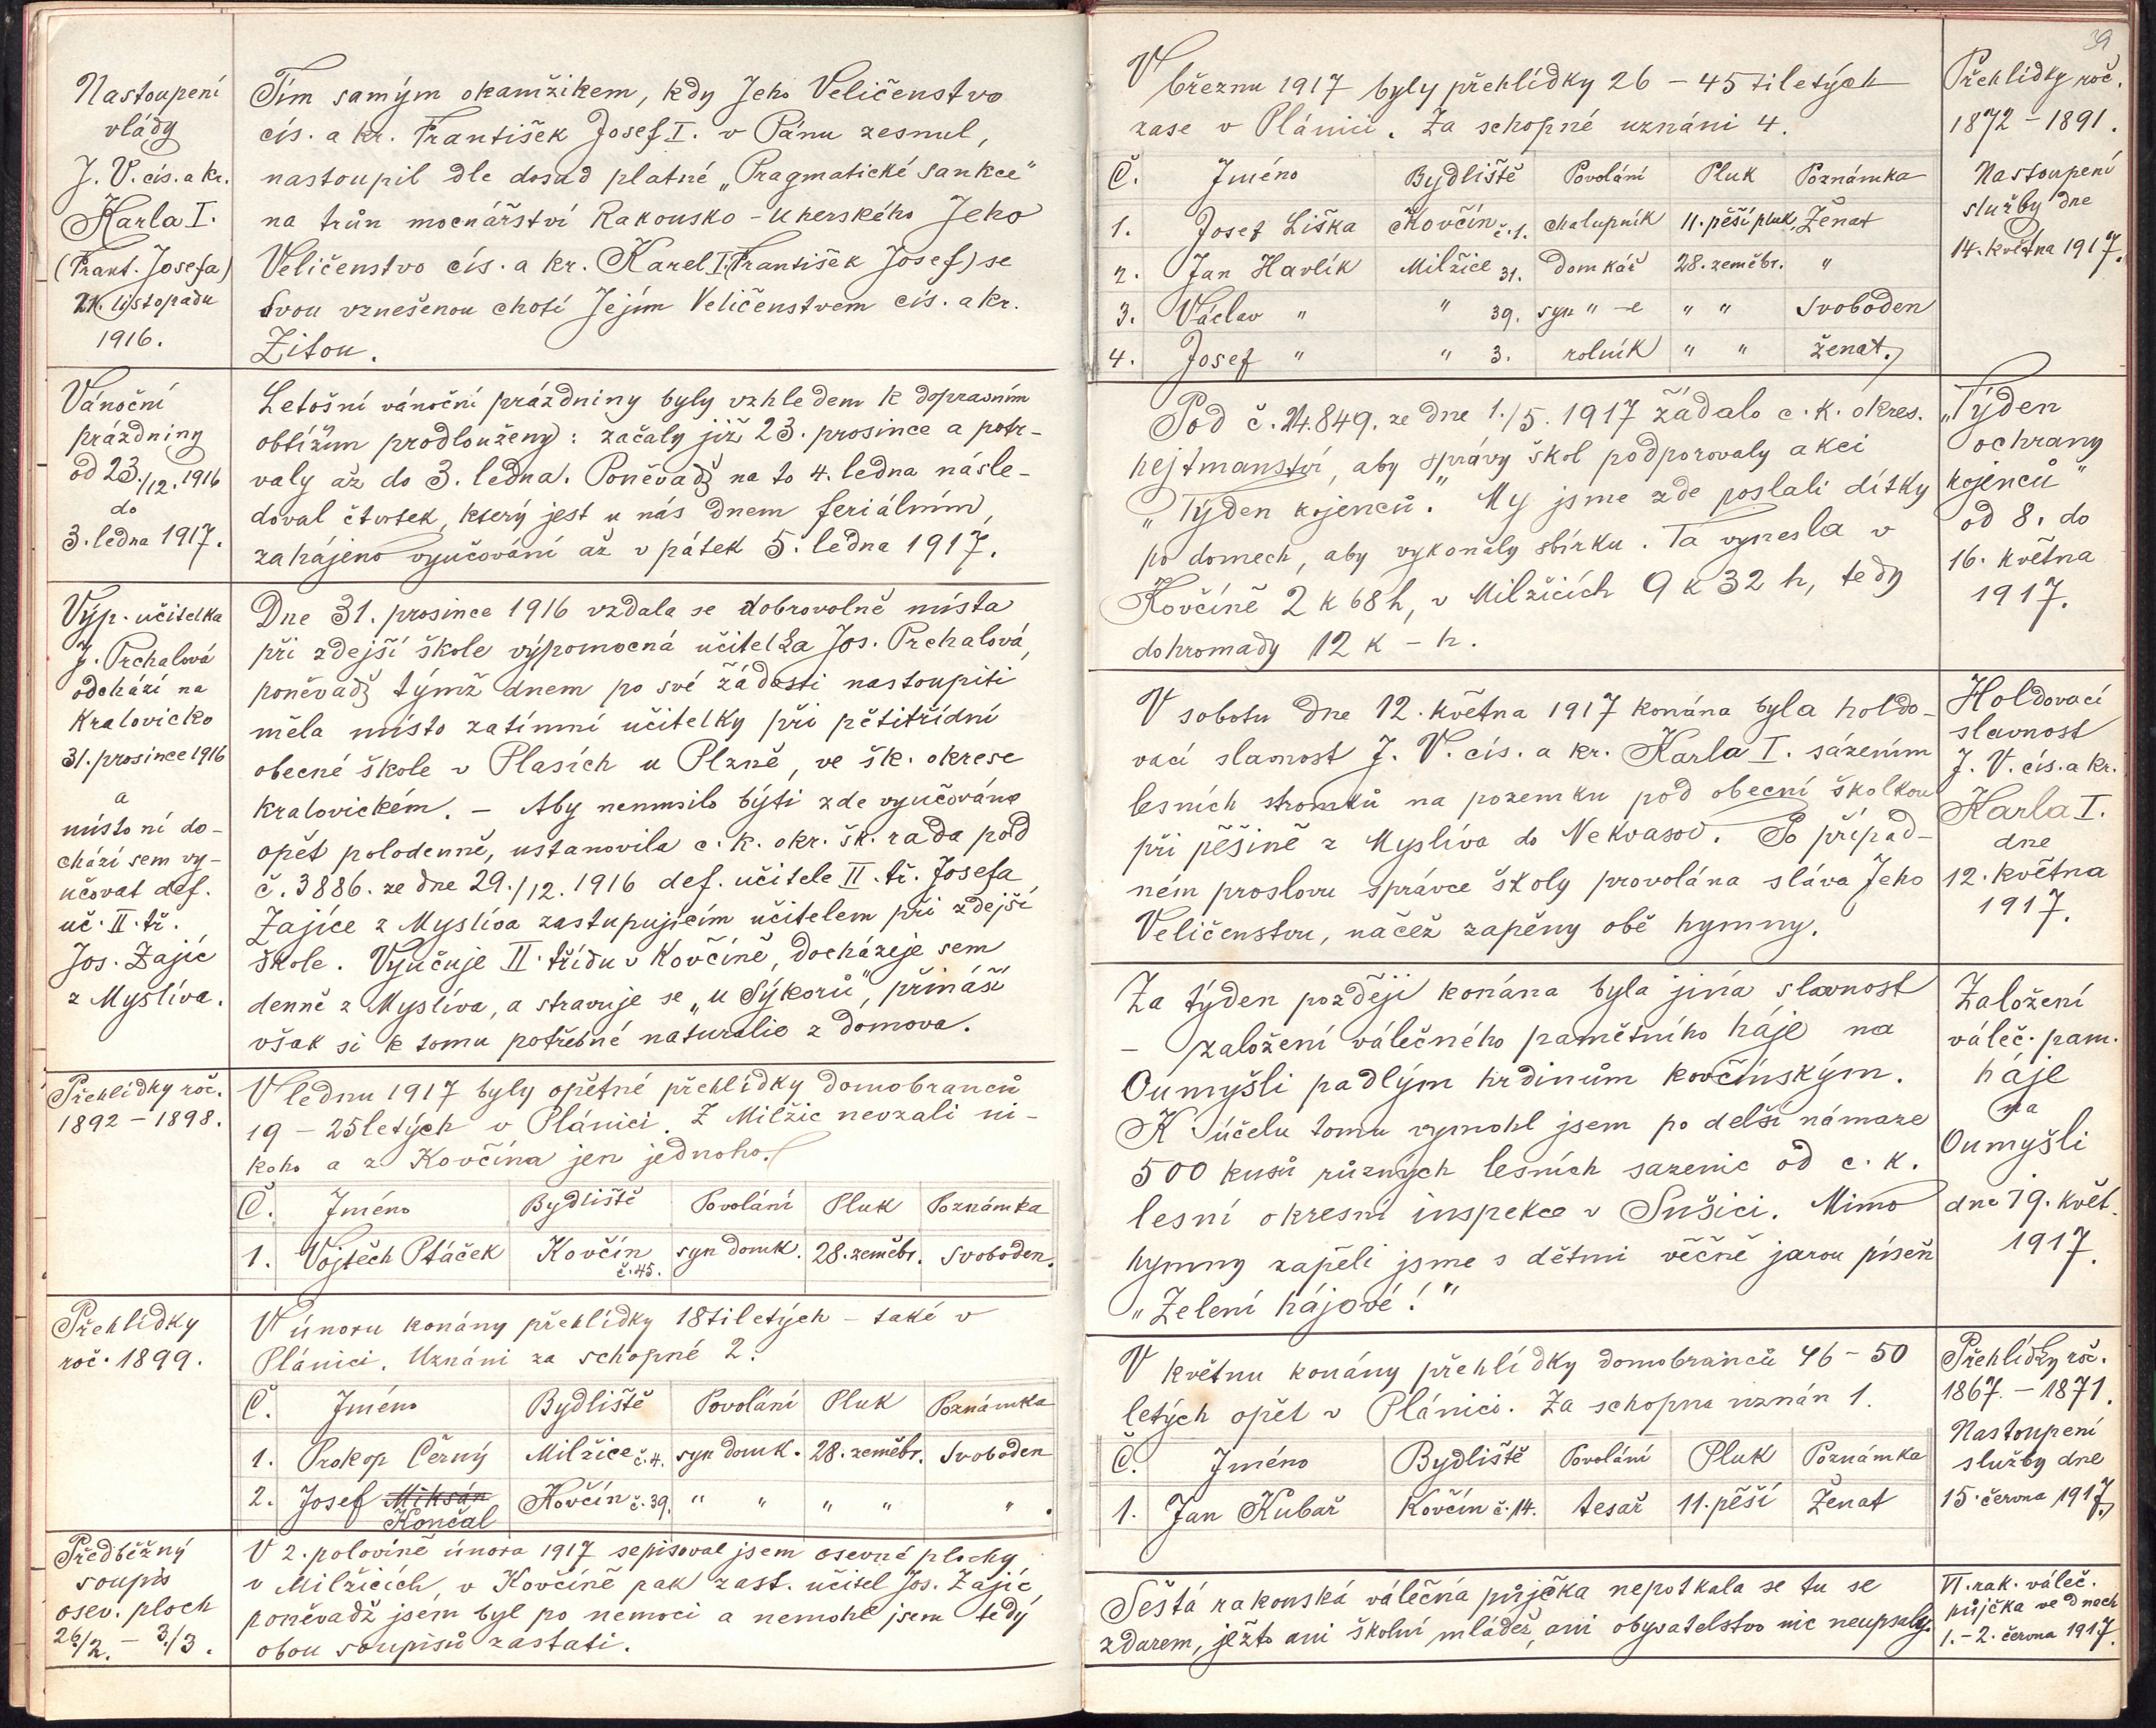 Nastoupení
vlády
J. V. cís. a kr.
Karla I.
(Frant. Josefa)
21. listopadu
1916.
Tím samým okamžikem, kdy Jeho Veličenstvo
cís. a kr. František Josef I. v Pánu zesnul,
nastoupil dle dosud platné „Pragmatické sankce“
na trůn mocnářství Rakousko-Uherského Jeho
Veličenstvo cís. a kr. Karel I. (František Josef) se
svou vznešenou chotí Jejím Veličenstvem cís. a kr.
Zitou.
Vánoční
prázdniny
od 23./12. 1916
do
3. ledna 1917.
Letošní vánoční prázdniny byly vzhledem k dopravním
obtížím prodlouženy: začaly již 23. prosince a potr-
valy až do 3. ledna. Poněvadž na to 4. ledna násle-
doval čtvrtek, který jest u nás dnem feriálním,
zahájeno vyučování až v pátek 5. ledna 1917.
Výp. učitelka
J. Prchalová
odchází na
Kralovicko
31. prosince 1916
a
místo ní do-
chází sem vy-
učovat def.
uč. II. tř.
Jos. Zajíc
z Myslíva.
Dne 31. prosince 1916 vzdala se dobrovolně místa
při zdejší škole výpomocná učitelka Jos. Prchalová,
poněvadž týmž dnem po své žádosti nastoupiti
měla místo zatímní učitelky při pětitřídní
obecné škole v Plasích u Plzně, ve šk. okrese
kralovickém. – Aby nemusilo býti zde vyučováno
opět polodenně, ustanovila c. k. okr. šk. rada pod
č. 3886. ze dne 29./12. 1916 def. učitele II. tř. Josefa
Zajíce z Myslíva zastupujícím učitelem při zdejší
škole. Vyučuje II. třídu v Kovčíně, docházeje sem
denně z Myslíva, a stravuje se „u Sýkorů“, přináší
však si k tomu potřebné naturalie z domova.
Přehlídky roč.
1892 – 1898.
V lednu 1917 byly opětné přehlídky domobranců
19 – 25letých v Plánici. Z Milžic nevzali ni-
koho a z Kovčína jen jednoho.
Č. Jméno Bydliště Povolání Pluk Poznámka
1. Vojtěch Ptáček Kovčín č. 45. syn domk. 28. zeměbr. Svoboden.
Přehlídky
roč. 1899.
V únoru konány přehlídky 18tiletých – také v
Plánici. Uznáni za schopné 2.
Č. Jméno Bydliště Povolání Pluk Poznámka
1. Prokop Černý Milžice č. 4. syn domk. 28. zeměbr. Svoboden
2. Josef Miksán Kovčín č. 39. " " " " " .
Končal
Předběžný
soupis
osev. ploch
26./2. – 3./3.
V 2. polovině února 1917 sepisoval jsem osevné plochy
v Milžicích, v Kovčíně pak zast. učitel Jos. Zajíc,
poněvadž jsem byl po nemoci a nemohl jsem tedy
obou soupisů zastati.
39
V březnu 1917 byly přehlídky 26 – 45tiletých
zase v Plánici. Za schopné uznáni 4.
Č. Jméno Bydliště Povolání Pluk Poznámka
1. Josef Liška Kovčín č. 1. chalupník 11. pěší pluk Ženat
2. Jan Havlík Milžice 31. domkář 28. zeměbr. "
3. Václav " " 39. syn " -e " " Svoboden
4. Josef " " 3. rolník " " ženat.
Přehlídky roč.
1872 – 1891.
Nastoupení
služby dne
14. května 1917.
Pod č. 24.849. ze dne 1./5. 1917 žádalo c. k. okres.
hejtmanství, aby správy škol podporovaly akci
„Týden kojenců“. My jsme zde poslali dítky
po domech, aby vykonaly sbírku. Ta vynesla v
Kovčíně 2 K 68 h, v Milžicích 9 K 32 h, tedy
dohromady 12 K – h.
„Týden
ochrany
kojenců“
od 8. do
16. května
1917.
V sobotu dne 12. května 1917 konána byla holdo-
vací slavnost J. V. cís. a kr. Karla I. sázením
lesních stromků na pozemku pod obecní školkou
při pěšině z Myslíva do Nekvasov. Po případ-
ném proslovu správce školy provolána sláva Jeho
Veličenstvu, načež zapěny obě hymny.
Holdovací
slavnost
J. V. cís. a kr.
Karla I.
dne
12. května
1917.
Za týden později konána byla jiná slavnost
– založení válečného pamětního háje na
Oumyšli padlým hrdinům kovčínským.
K účelu tomu vymohl jsem po delší námaze
500 kusů různých lesních sazenic od c. k.
lesní okresní inspekce v Sušici. Mimo
hymny zapěli jsme s dětmi věčně jarou píseň
„Zelení hájové!“
Založení
váleč. pam.
háje
na
Oumyšli
dne 19. květ.
1917.
V květnu konány přehlídky domobranců 46 – 50
letých opět v Plánici. Za schopna uznán 1.
Č. Jméno Bydliště Povolání Pluk Poznámka
1. Jan Kubař Kovčín č. 14. tesař 11. pěší Ženat
Přehlídky roč.
1867. – 1871.
Nastoupení
služby dne
15. června 1917.
Šestá rakouská válečná půjčka nepotkala se tu se
zdarem, ježto ani školní mládež, ani obyvatelstvo nic neupsaly.
VI. rak. váleč.
půjčka ve dnech
1. – 2. června 1917.